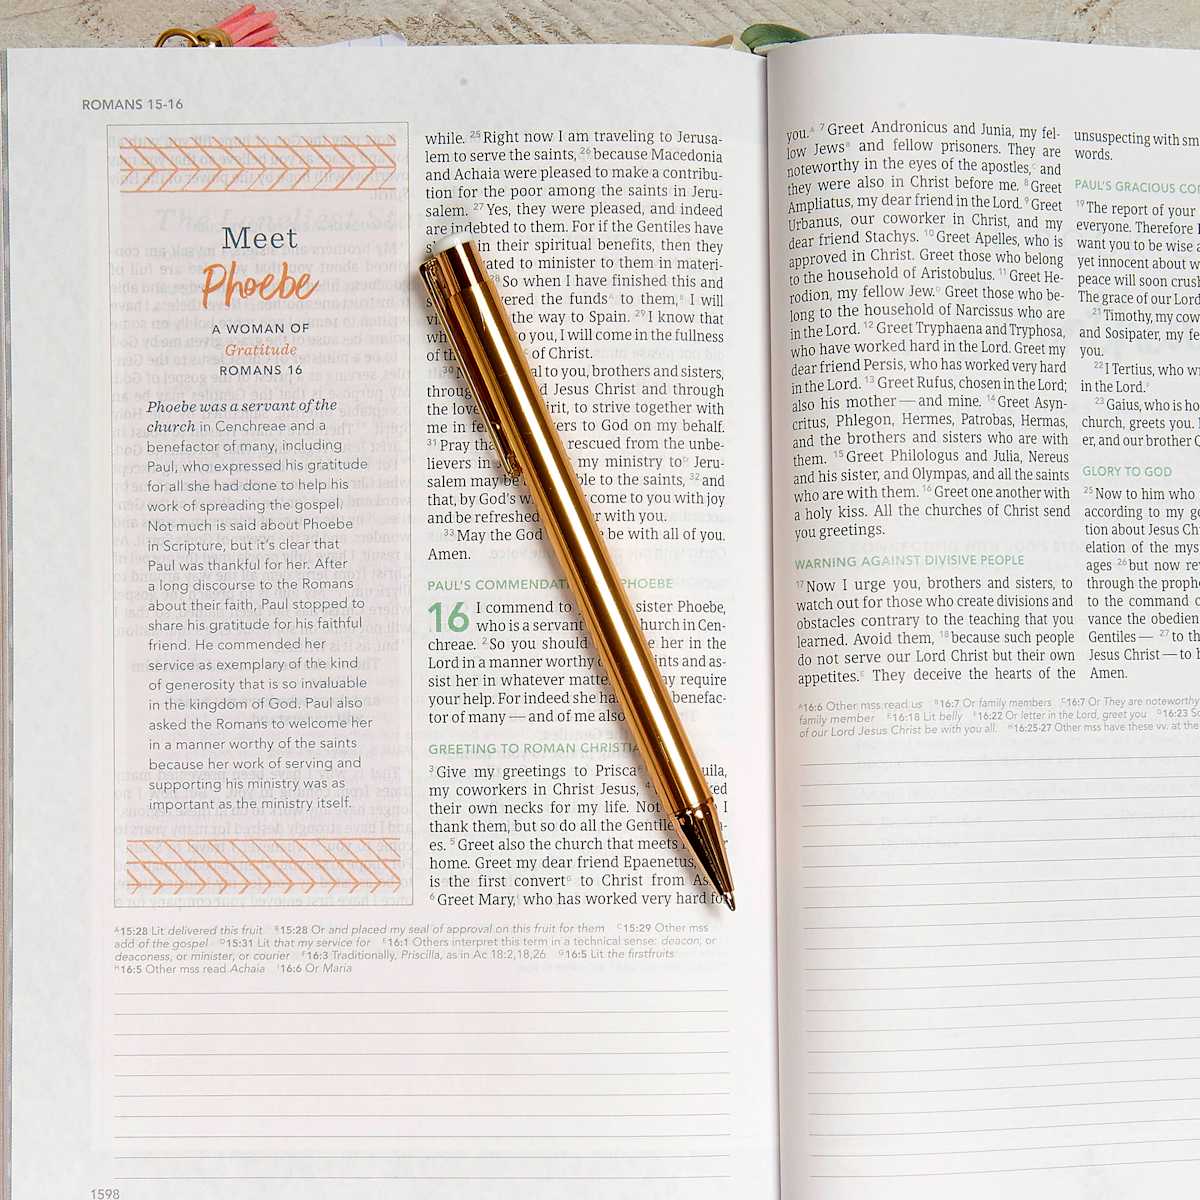 ROMANS 15-16
Meet
Phoebe
A WOMAN OF
Gratitude
ROMANS 16
Phoebe was a servant of the
church in Cenchreae and a
benefactor of many, including
Paul, who expressed his gratitude
for all she had done to help his
work of spreading the gospel.
Not much is said about Phoebe
in Scripture, but it's clear that
Paul was thankful for her. After
a long discourse to the Romans
about their faith, Paul stopped to
share his gratitude for his faithful
friend. He commended her
service as exemplary of the kind
of generosity that is so invaluable
in the kingdom of God. Paul also
asked the Romans to welcome her
in a manner worthy of the saints
because her work of serving and
supporting his ministry was as
important as the ministry itself.
while. 25 Right now I am traveling to Jerusa-
lem to serve the saints, 26 because Macedonia
and Achaia were pleased to make a contribu-
tion for the poor among the saints in Jeru-
salem. 27 Yes, they were pleased, and indeed
are indebted to them. For if the Gentiles have
in their spiritual benefits, then they
to minister to them in materi-
28 So when I have finished this and
the funds A to them, B I will
the way to Spain. 29 I know that
to you, I will come in the fullness
of Christ.
30 to you, brothers and sisters,
Jesus Christ and through
the to strive together with
me in to God on my behalf.
31 Pray rescued from the unbe-
lievers in my ministry to D Jeru-
salem may be to the saints, 32 and
that, by God's come to you with joy
and be refreshed with you.
33 May the God be with all of you.
Amen.
PAUL'S PHOEBE
16 I commend to sister Phoebe,
who is a servant in Cen-
chreae. 2 So you should her in the
Lord in a manner worthy and as-
sist her in whatever require
your help. For indeed she benefac-
tor of many — and of me also
GREETING TO ROMAN
3 Give my greetings to Prisca
my coworkers in Christ Jesus, 4
their own necks for my life. Not I
thank them, but so do all the
es. 5 Greet also the church that meets
home. Greet my dear friend Epaenetus,
is the first convert G to Christ from
6 Greet Mary, I who has worked very hard
A 15:28 Lit delivered this fruit B 15:28 Or and placed my seal of approval on this fruit for them C 15:29 Other mss
add of the gospel D 15:31 Lit that my service for E 16:1 Others interpret this term in a technical sense: deacon, or
deaconess, or minister, or courier F 16:3 Traditionally, Priscilla, as in Ac 18:2,18,26 G 16:5 Lit the firstfruits
H 16:5 Other mss read Achaia I 16:6 Or Maria
1598
you. A 7 Greet Andronicus and Junia, my fel-
low Jews B and fellow prisoners. They are
noteworthy in the eyes of the apostles, C and
they were also in Christ before me. 8 Greet
Ampliatus, my dear friend in the Lord. 9 Greet
Urbanus, our coworker in Christ, and my
dear friend Stachys. 10 Greet Apelles, who is
approved in Christ. Greet those who belong
to the household of Aristobulus. 11 Greet He-
rodion, my fellow Jew. D Greet those who be-
long to the household of Narcissus who are
in the Lord. 12 Greet Tryphaena and Tryphosa,
who have worked hard in the Lord. Greet my
dear friend Persis, who has worked very hard
in the Lord. 13 Greet Rufus, chosen in the Lord;
also his mother — and mine. 14 Greet Asyn-
critus, Phlegon, Hermes, Patrobas, Hermas,
and the brothers and sisters who are with
them. 15 Greet Philologus and Julia, Nereus
and his sister, and Olympas, and all the saints
who are with them. 16 Greet one another with
a holy kiss. All the churches of Christ send
you greetings.
WARNING AGAINST DIVISIVE PEOPLE
17 Now I urge you, brothers and sisters, to
watch out for those who create divisions and
obstacles contrary to the teaching that you
learned. Avoid them, 18 because such people
do not serve our Lord Christ but their own
appetites. E They deceive the hearts of the
unsuspecting with
words.
PAUL'S GRACIOUS
19 The report of your
everyone. Therefore
want you to be wise
yet innocent about
peace will soon
The grace of our Lord
21 Timothy, my
and Sosipater, my
you.
22 I Tertius, who
in the Lord. F
23 Gaius, who is
church, greets you.
er, and our brother
GLORY TO GOD
25 Now to him who
according to my
tion about Jesus
elation of the
ages 26 but now
through the
to the command
vance the
Gentiles — 27 to
Jesus Christ — to
Amen.
A 16:6 Other mss read us B 16:7 Or family members C 16:7 Or They are noteworthy
family member E 16:18 Lit belly F 16:22 Or letter in the Lord, greet you G 16:23
of our Lord Jesus Christ be with you all. H 16:25-27 Other mss have these vv. at the